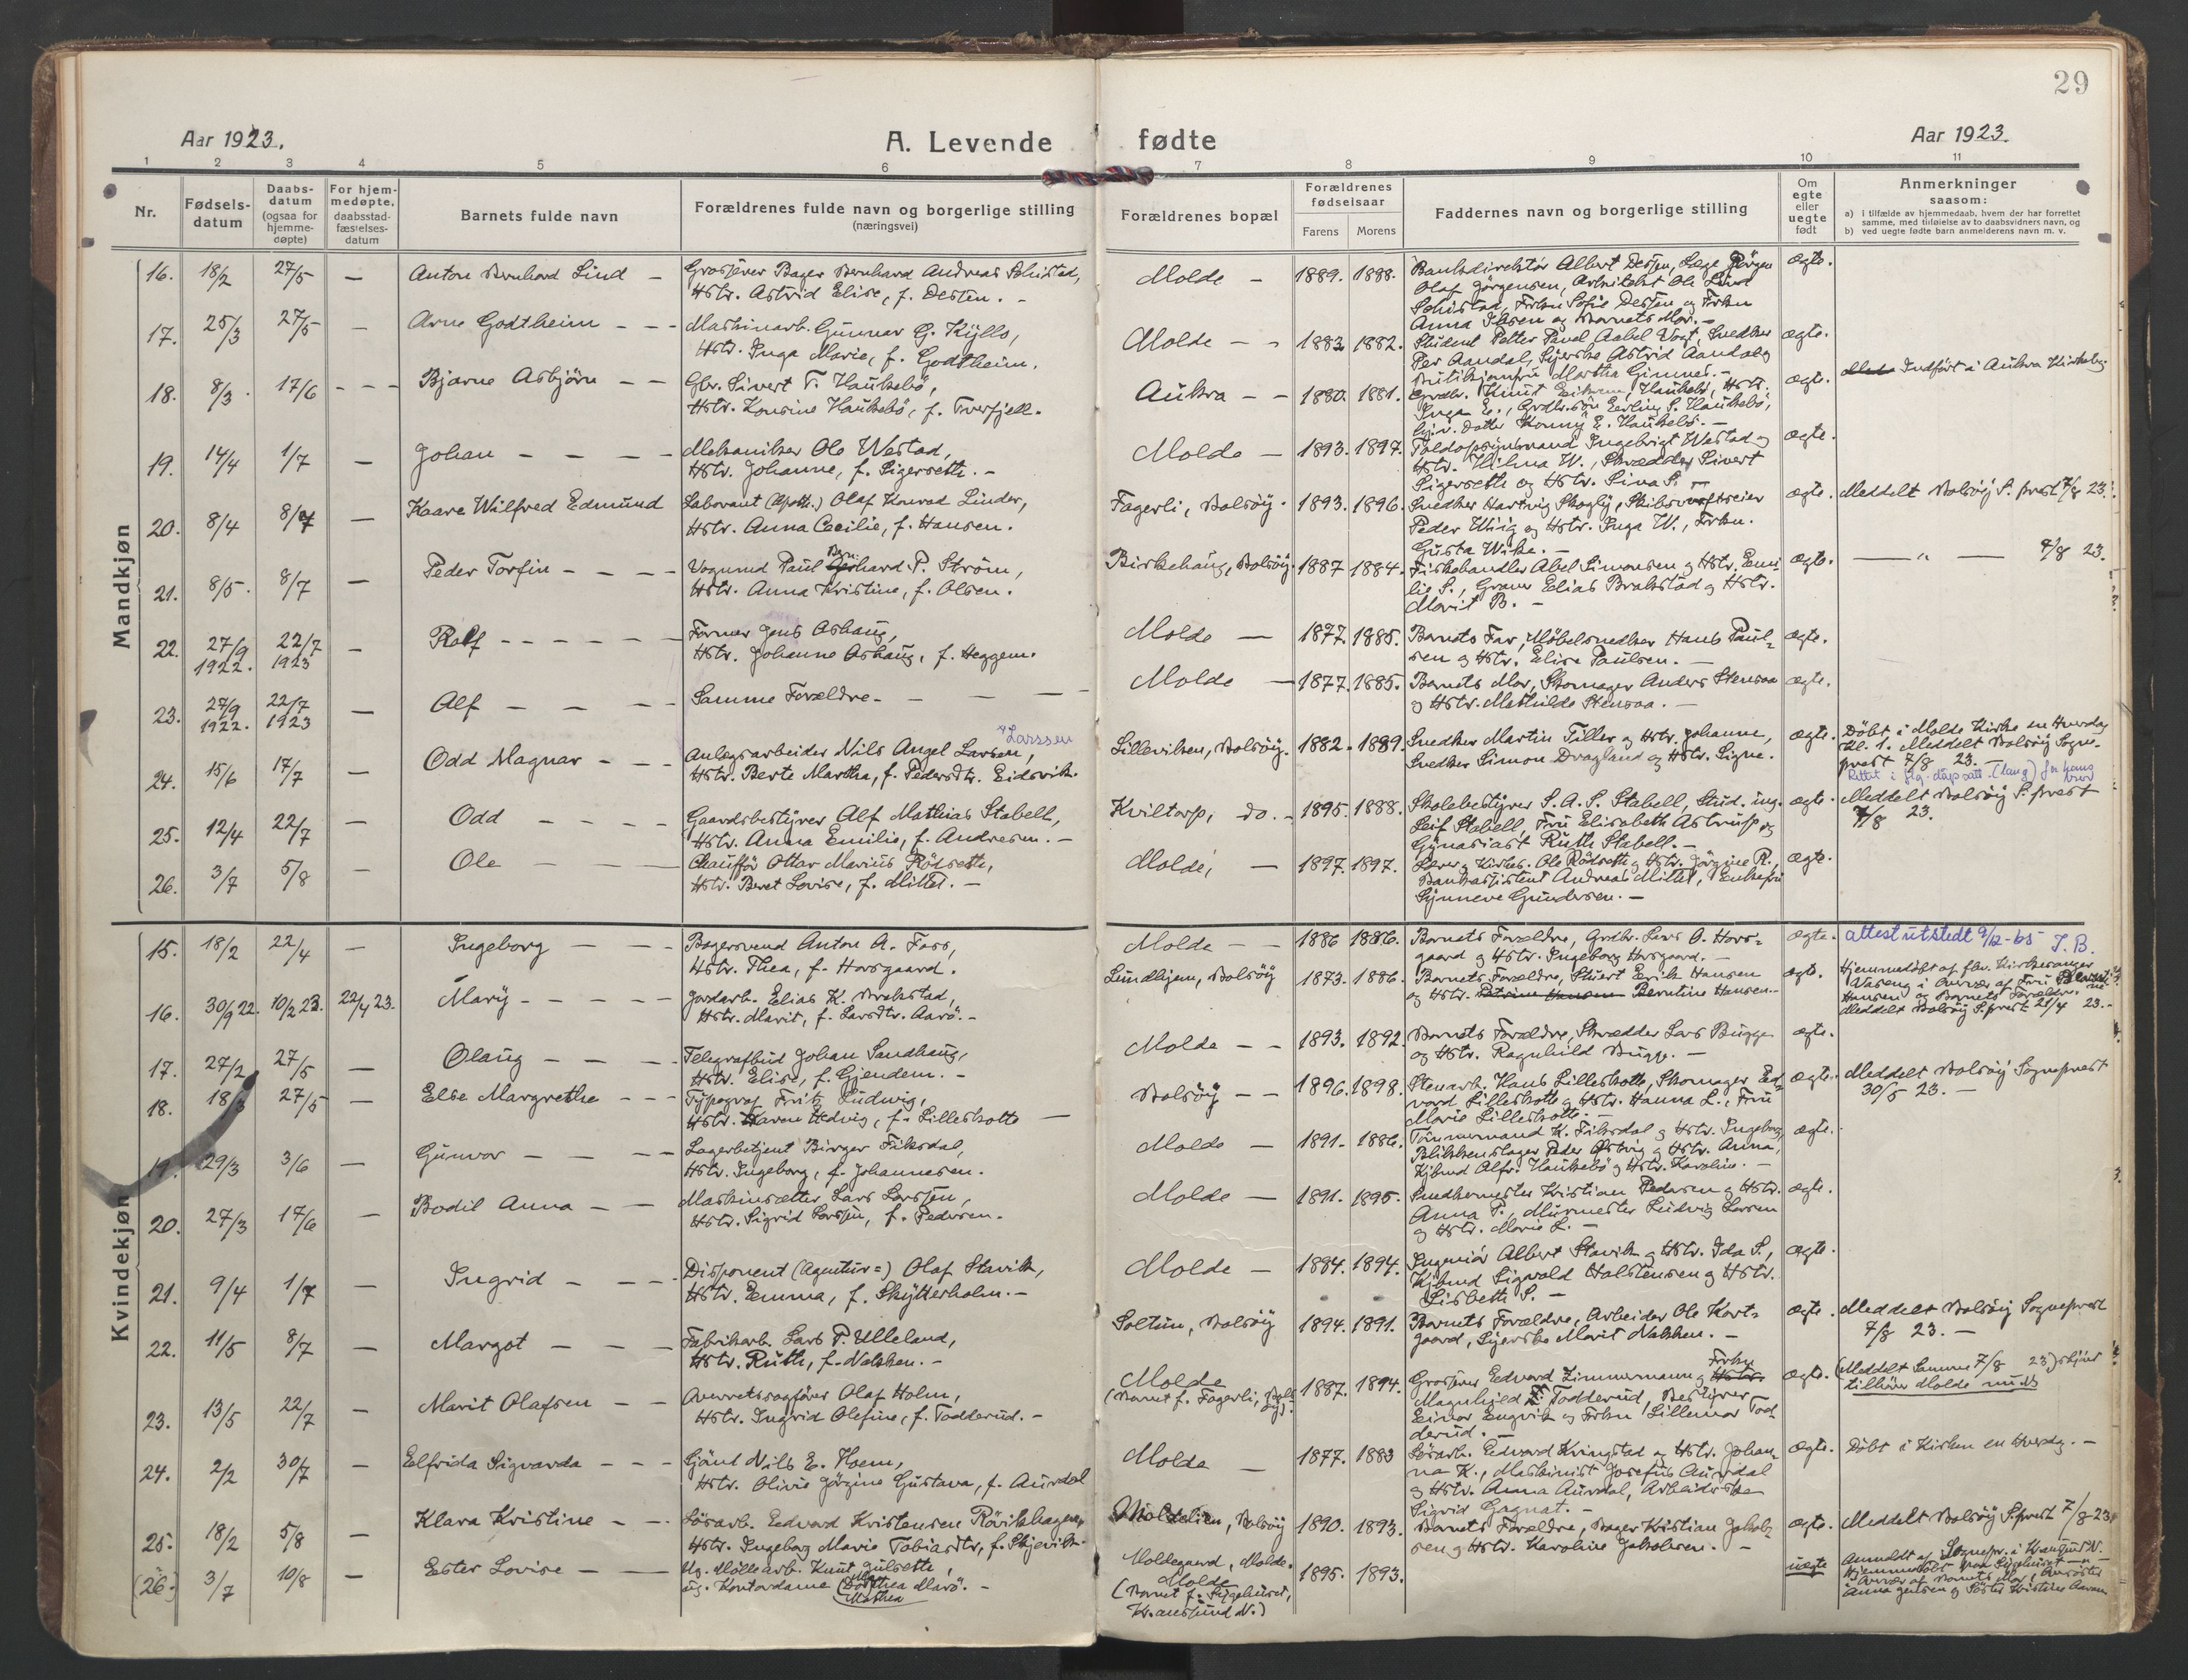 29
Aar 1923.
A. Levende fødte
Aar 1923.
1 2 3 4 5 6 7 8 9 10 11
Nr.
Fødsels-
datum
Daabs-
datum
(ogsaa for
hjemme-
døpte)
For hjem-
medøpte,
daabsstad-
fæstelses-
datum
Barnets fulde navn
Forældrenes fulde navn og borgerlige stilling
(næringsvei)
Forældrenes bopæl
Forældrenes
fødselsaar
Farens Morens
Faddernes navn og borgerlige stilling
Om
egte
eller
uegte
født
Anmerkninger
saasom:
a) i tilfælde av hjemmedaab, hvem der har forrettet
samme, med tilføielse av to daabsvidners navn, og
b) ved uegte fødte barn anmelderens navn m. v.
Mandkjøn
16. 18/2 27/5 — Anton Bernhard Lind — Grosserer Bager Bernhard Andreas Schistad,
Hstr. Astrid Elise, f. Dessen. —
Molde — 1889. 1888. Bankdirektør Albert Dessen, Læge Jørgen
Olaf Jørgensen, Arkitekt Ole Lind
Schistad, Frkn Sofie Dessen og Frkn
Anna Ibsen og Barnets Mor. —
ægte.
17. 25/3 27/5 — Arne Godtheim — — — Maskinarb. Gunnar G. Kyllo,
Hstr. Inga Marie, f. Godtheim.
Molde — — 1883. 1882. Student Petter Paul Aabel Vogt, Snedker
Per Aandal, Syerske Astrid Aandal og
Butikjomfru Martha Gimnes. —
ægte.
18. 8/3. 17/6 — — — Bjarne Asbjørn — — Gbr. Sivert T. Haukebø,
Hstr. Konsine Haukebø, f. Tverfjell.
Aukra — — 1880. 1881. Grdbr. Knut Eikrem, Haukebø, Hstr.
Inga E., Grdbr.søn Erling S. Haukebø,
Gbr. Datter Konny E. Haukebø. —
ægte. Indført i Aukra Kirkebog.
19. 14/4 1/7 — Johan — — — — Mekaniker Ole Westad,
Hstr. Johanne, f. Sigerseth. —
Molde — 1893. 1897. Toldopsynsmand Ingebrigt Westad og
Hstr. Hilma W., Skrædder Sivert
Sigerseth og Hstr. Sina S. —
ægte.
20. 8/4 8/7 — Kaare Wilfred Edmund Laborant (Apoth.) Olaf Konrad Linder,
Hstr. Anna Cecilie, f. Hansen.
Fagerli, Bolsøy. 1893. 1896. Snedker Hartvig Skogly, Skibsværftseier
Peder Wiig og Hstr. Inga W., Frkn.
Gusta Wike. —
ægte. Meddelt Bolsøy S. prest 7/8 23.
21. 8/5. 8/7 — Peder Torfin — — — — Vognmd Paul Bernhard P. Strøm,
Hstr. Anna Kristine, f. Olsen.
Birkehaug, Bolsøy. 1887 1884. Fiskehandler Abel Simonsen og Hstr. Emi-
lie S., Graver Elias Brakstad og Hstr.
Marit B. —
ægte. — " — 7/8 23.
22. 27/9 1922. 22/7 1923 — Ralf — — — — — — Former Jens Ashaug,
Hstr. Johanne Ashaug, f. Heggem.
Molde — 1877. 1885. Barnets Far, Møbelsnedker Hans Paul-
sen og Hstr. Elise Paulsen. —
ægte.
23. 27/9 1922. 22/7 1923 — Alf — — — — Samme Forældre — — — —
Molde — 1877. 1885. Barnets Mor, Skomager Anders Stensaa
og Hstr. Mathilde Stensaa. —
ægte.
24. 15/6 17/7 — Odd Magnar — — — Anlægsarbeider Nils Angel Larsen,
Larssen
Hstr. Berte Martha, f. Pedersdtr. Eidsvik.
Lilleviken, Bolsøy. 1882. 1889. Snedker Martin Tiller og Hstr. Johanne,
Snedker Simon Dragland og Hstr. Signe.
ægte. Døbt i Molde Kirke en Hverdag
Kl. 1. Meddelt Bolsøy Sogne-
prest 7/8 23. —
25. 12/4 22/7 — Odd — — — — Gaardsbestyrer Alf Mathias Stabell,
Hstr. Anna Emilie, f. Andresen. —
Kviltorp, do. — 1895. 1888. Skolebestyrer S. A. S. Stabell, Stud. ing.
Leif Stabell, Fru Elisabeth Astrup og
Gymnasiast Ruth Stabell. —
ægte. Meddelt Bolsøy S. prest
7/8 23.
26. 3/7 5/8 — Ole — — — — Chauffør Ottar Marius Rødseth,
Hstr. Beret Lovise, f. Mittet. —
Molde, — 1897. 1897. Lærer og Kirkes. Ole Rødseth og Hstr. Jørgine R.,
Bankassistent Andreas Mittet, Enkefru
Synneve Gundersen. —
ægte.
Kvindekjøn
15. 18/2 22/4 — Ingeborg — — — Bagersvend Anton A. Foss,
Hstr. Thea, f. Horsgaard.
Molde — — 1886 1886. Barnets Forældre, Grdbr. Lars O. Hors-
gaard og Hstr. Ingeborg Horsgaard. —
ægte. attest utstedt 9/12-65 T. B.
16. 30/9 22. 10/2 23. 22/4 23. Mary — — — — — Jordarb. Elias K. Brakstad,
Hstr. Marit, f. Larsdtr. Aarø. —
Lundhjem, Bolsøy 1873. 1886. Barnets Forældre, Stuert Erik Hansen
og Hstr. Petrine Hansen Berntine Hansen.
ægte. Hjemmedøbt af fhv. Kirkesanger
Vaseng i Overvær af Fru Berntine
Hansen og Barnets Forældre.
Meddelt Bolsøy S.prest 21/4 23. —
17. 27/2 27/5 — Olaug — — — — Telegrafbud Johan Sandhaug,
Hstr. Elise, f. Gjendem. —
Molde — — 1893. 1892. Barnets Forældre, Skrædder Lars Bugge
og Hstr. Ragnhild Bugge. —
ægte.
18. 18/3 27/5 — Else Margrethe — — — Typograf Fritz Ludwig,
Hstr. Karen Hedvig, f. Lilleskotte —
Bolsøy — — 1896. 1898. Stenarb. Hans Lilleskotte, Skomager Ed-
vard Lilleskotte og Hstr. Hanna L., Fru
Marie Lilleskotte. —
ægte. Meddelt Bolsøy Sogneprest
30/5 23. —
19. 29/3 3/6 — Gunvor — — — — Lagerbetjent Birger Fiksdal,
Hstr. Ingeborg, f. Johannesen.
Molde — 1891. 1886. Tømmermand K. Fiksdal og Hstr. Ingeborg,
Blikkenslager Peder Østvig og Hstr. Anna,
Kjbmd Alfr. Haukebø og Hstr. Karoline. —
ægte.
20. 27/3 17/6 — Bodil Anna — — Maskinsætter Lars Larssen,
Hstr. Sigrid Larssen, f. Pedersen.
Molde — 1891. 1895. Snedkermester Kristian Pedersen og Hstr.
Anna P., Murmester Ludvig Larsen
og Hstr. Marie L. —
ægte.
21. 9/4 1/7 — Ingrid — — — — Disponent (Agentur=) Olaf Stavik,
Hstr. Emma, f. Skytterholm. —
Molde — 1884. 1894. Ingeniør Albert Stavik og Hstr. Ida S.,
Kjbmd Sigvald Halstensen og Hstr.
Lisbeth S. —
ægte.
22. 11/5 8/7 — Margot — — — — Fabrikarb. Lars P. Ulleland,
Hstr. Ruth, f. Nakken. —
Soltun, Bolsøy 1894. 1891. Barnets Forældre, Arbeider Ole Kort-
gaard, Syerske Marit Nakken. —
ægte. Meddelt Bolsøy Sogneprest
7/8 23. —
23. 13/5 22/7 — Marit Olafsen — — Overretssagfører Olaf Holm,
Hstr. Ingrid Olefine, f. Todderud. —
Molde
(Barnet f. Fagerli, Bolsøy). 1887. 1894. Grosserer Edvard Zimmermann og Hstr. Frkn
Magnhild Todderud, Bestyrer
Einar Engvik og Frkn Lillemor Tod-
derud. —
ægte. (Meddelt Samme 7/8 23) skjønt
tilhører Molde
24. 2/2 30/7 — Elfrida Sigvarda — — — Sjømd Nils E. Hoem,
Hstr. Olivie Jørgine Gustava, f. Aurdal
Molde — 1877. 1883 Løsarb. Edvard Kvingstad og Hstr. Johan-
na K., Maskinist Josefus Aurdal
og Hstr. Anna Aurdal, Arbeiderske
Sigrid Gagnat. —
ægte. Døbt i Kirken en Hverdg. —
25. 18/2 5/8 — Klara Kristine — — Løsarb. Edvard Kristensen Rørvikhagen,
Hstr. Ingeborg Marie Tobiasdtr, f. Skjevik.
Moldelien, Bolsøy 1890. 1893. Barnets Forældre, Bager Kristian Jakob-
sen og Hstr. Karoline Jakobsen. —
ægte. Meddelt Bolsøy S.prest 7/8 23
(26.) 3/7 10/8 — Ester Lovise — — Ug. Møllearb. Knut Gulseth,
ug. Kontordame Dorthea Aarø. —
Mathea
Moldegaard, Molde.
Molde
(Barnet f. Sygehuset,
Kr.ansund N.) 1895. 1893.
uægte Anmeldt af Sognepr. i Kr.ansund N.